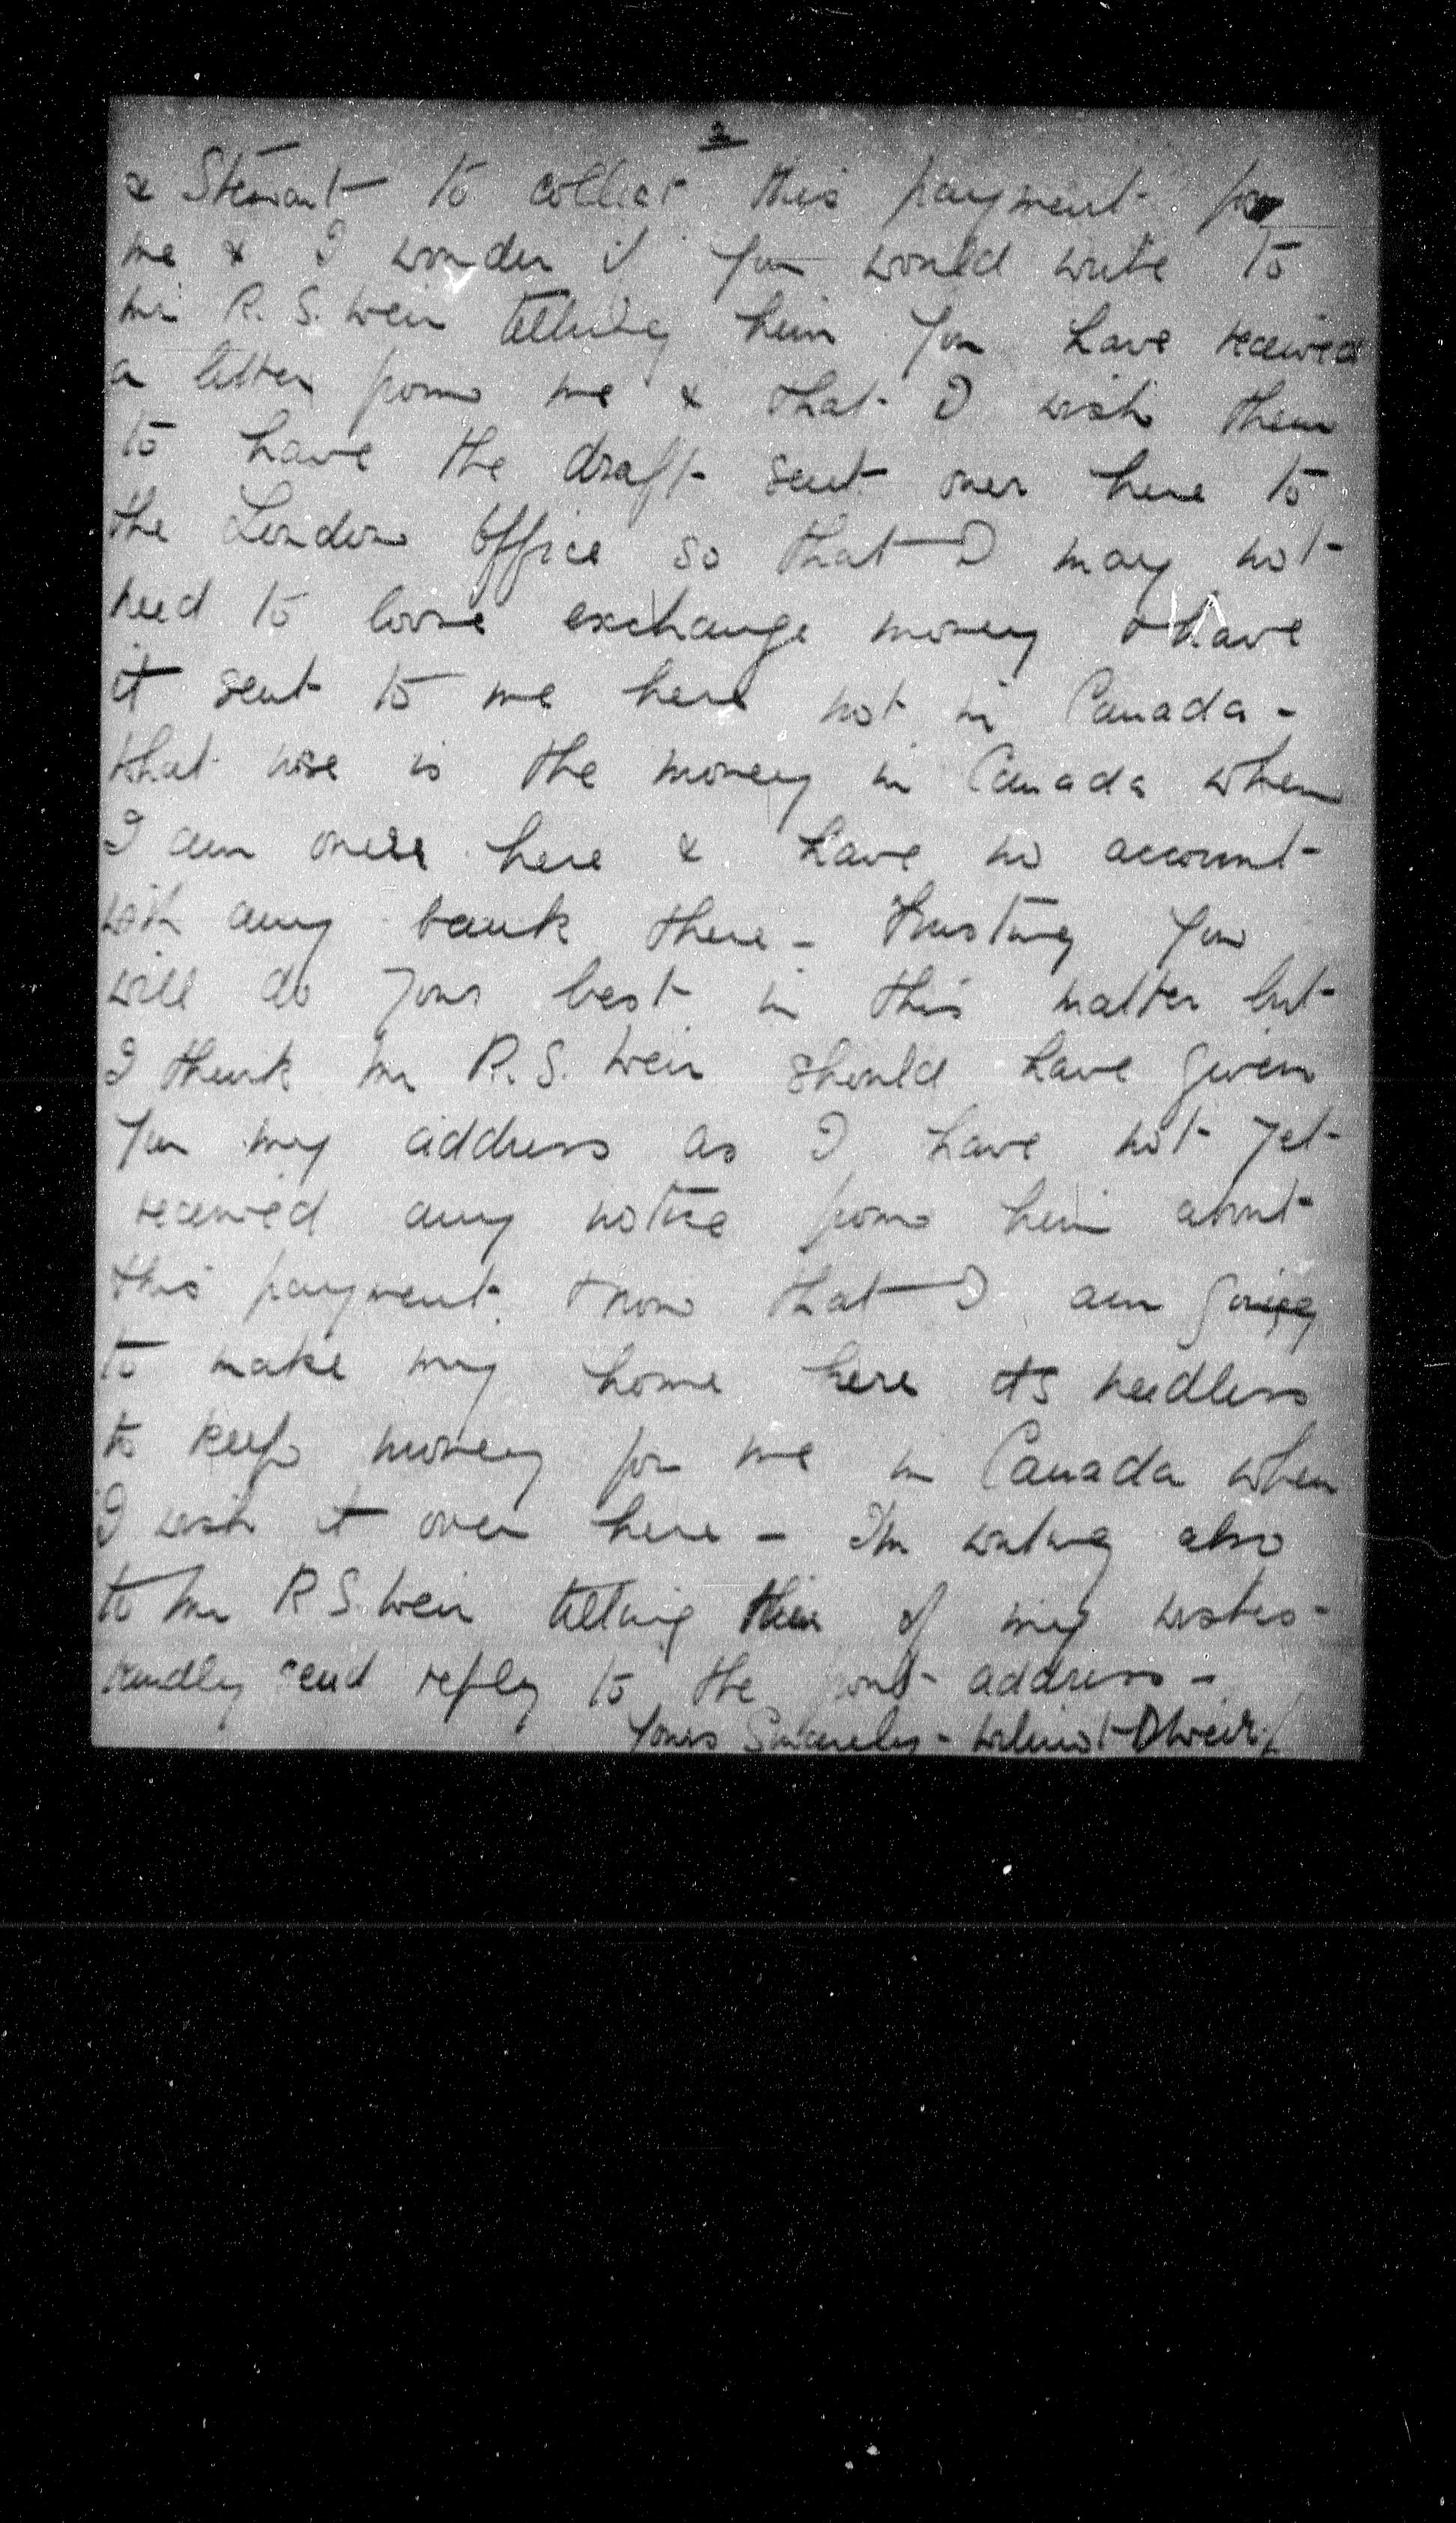 2
& Stewart to collect this payment for
me & I wonder if you would write to
Mr R. S. Weir telling him you have received
a letter from me & that I wish them
to have the draft sent over here to
the London Office so that I may not
need to loose exchange money & have
it sent to me here not in Canada -
What use is the money in Canada when
I am over here & have no account
with any bank there - Trusting you
will do your best in this matter but
I think Mr R. S. Weir should have given
you my address as I have not yet
received any notice from him about
this payment & now that I am going
to make my home here its needless
to keep money for me in Canada when
I wish it over here - I'm writing also
to Mr R S. Weir telling him of my wishes -
kindly send reply to the front address -
Yours Sincerely - Wilmot D Weir